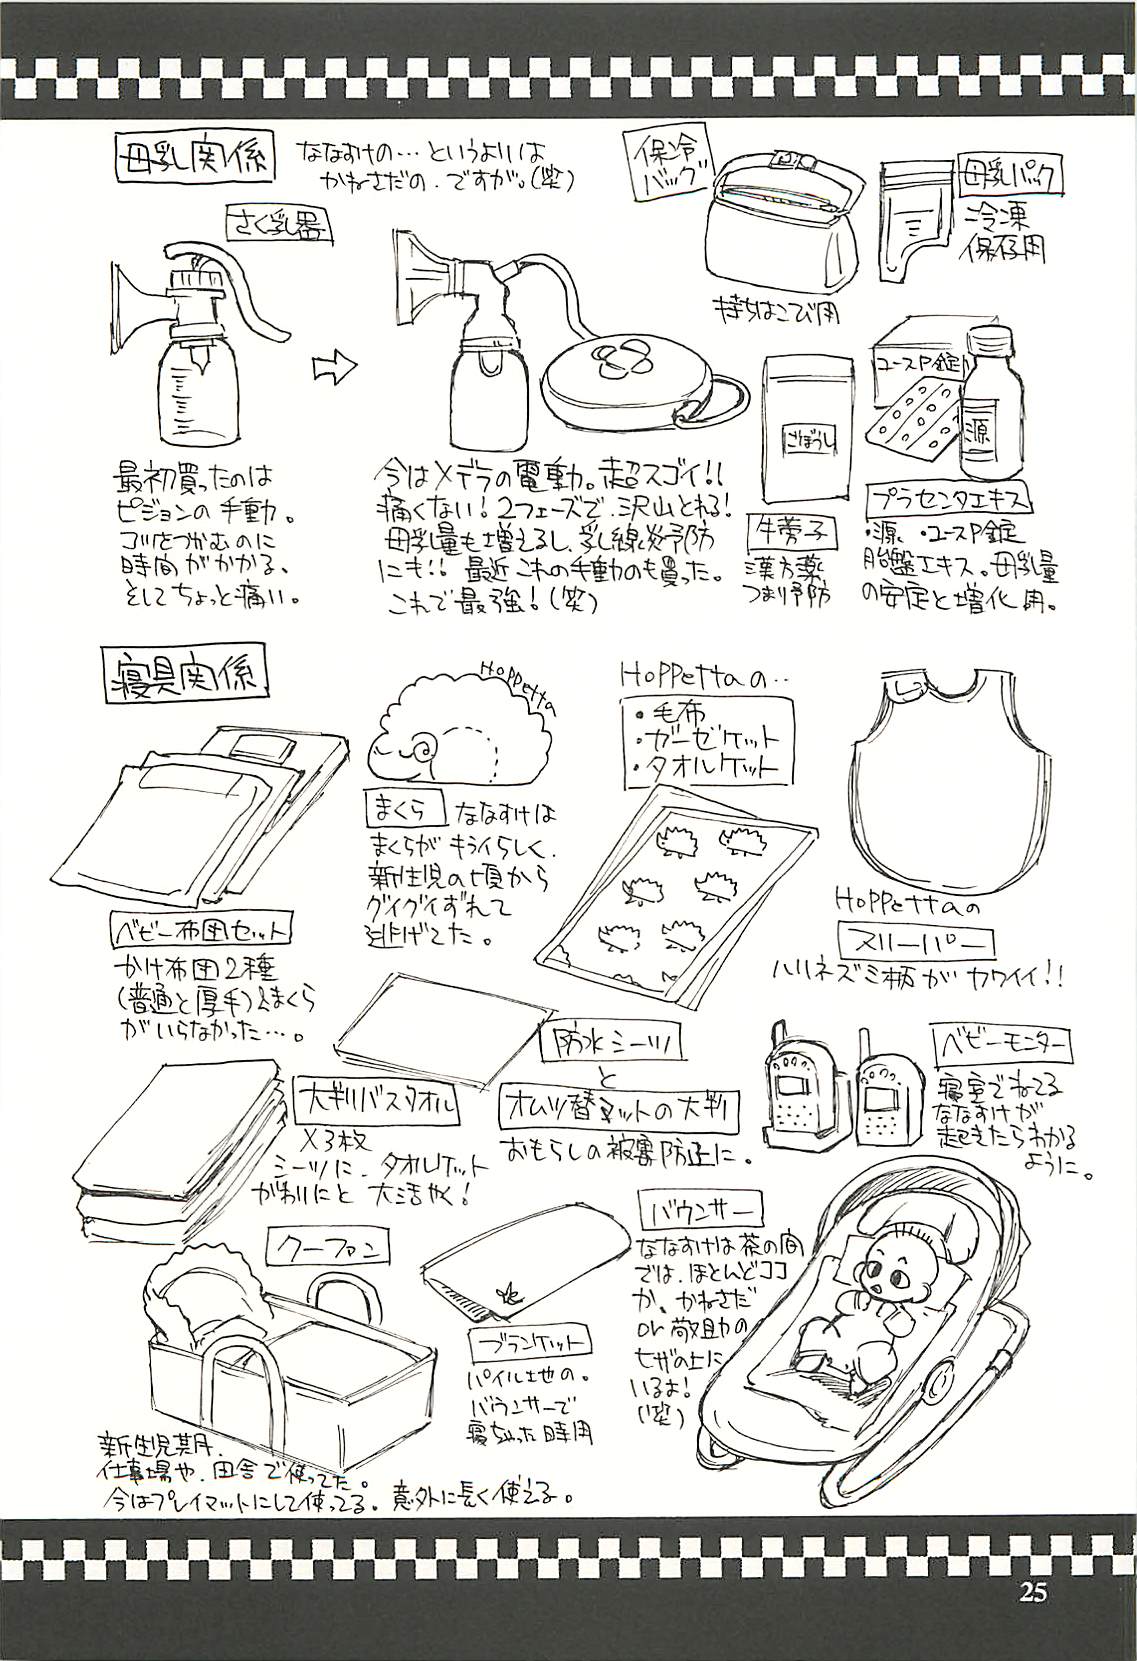 母乳関係
ななすけの…というよりは
かねさだの.ですが。(笑)
さく乳器
最初買ったのは
ピジョンの手動。
コツをつかむのに
時間がかかる、
そしてちょっと痛い。
今はメデラの電動。超スゴイ!!
痛くない!2フェーズで、沢山とれる!
母乳量も増えるし、乳線炎予防
にも!!最近これの手動のも買った。
これで最強!(笑)
保冷
バッグ
持ちはこび用
母乳パック
冷凍
保存用
ごぼうし
牛蒡子
漢方薬
つまり予防
ユースP錠
源
プラセンタエキス
・源、・ユースP錠
胎盤エキス。母乳量
の安定と増化用。
寝具関係
ベビー布団セット
かけ布団2種
(普通と厚手)&まくら
がいらなかった…。
Hoppetta
まくら
ななすけは
まくらがキライらしく、
新生児の頃から
グイグイずれて
逃げてた。
Hoppettaの‥
・毛布
・ガーゼケット
・タオルケット
Hoppettaの
スリーパー
ハリネズミ柄がカワイイ!!
防水シーツ
と
オムツ替マットの大判
おもらしの被害防止に。
ベビーモニター
寝室でねてる
ななすけが
起きたらわかる
ように。
大判バスタオル
×3枚
シーツに、タオルケット
がわりにと大活やく!
クーファン
新生児期、
仕事場や、田舎で使ってた。
今はプレイマットにして使ってる。意外に長く使える。
ブランケット
パイル地の。
バウンサーで
寝ちゃった時用
バウンサー
ななすけは茶の間
では、ほとんどココ
か、かねさだ
or 敬助の
ヒザの上に
いるよ!
(笑)
25